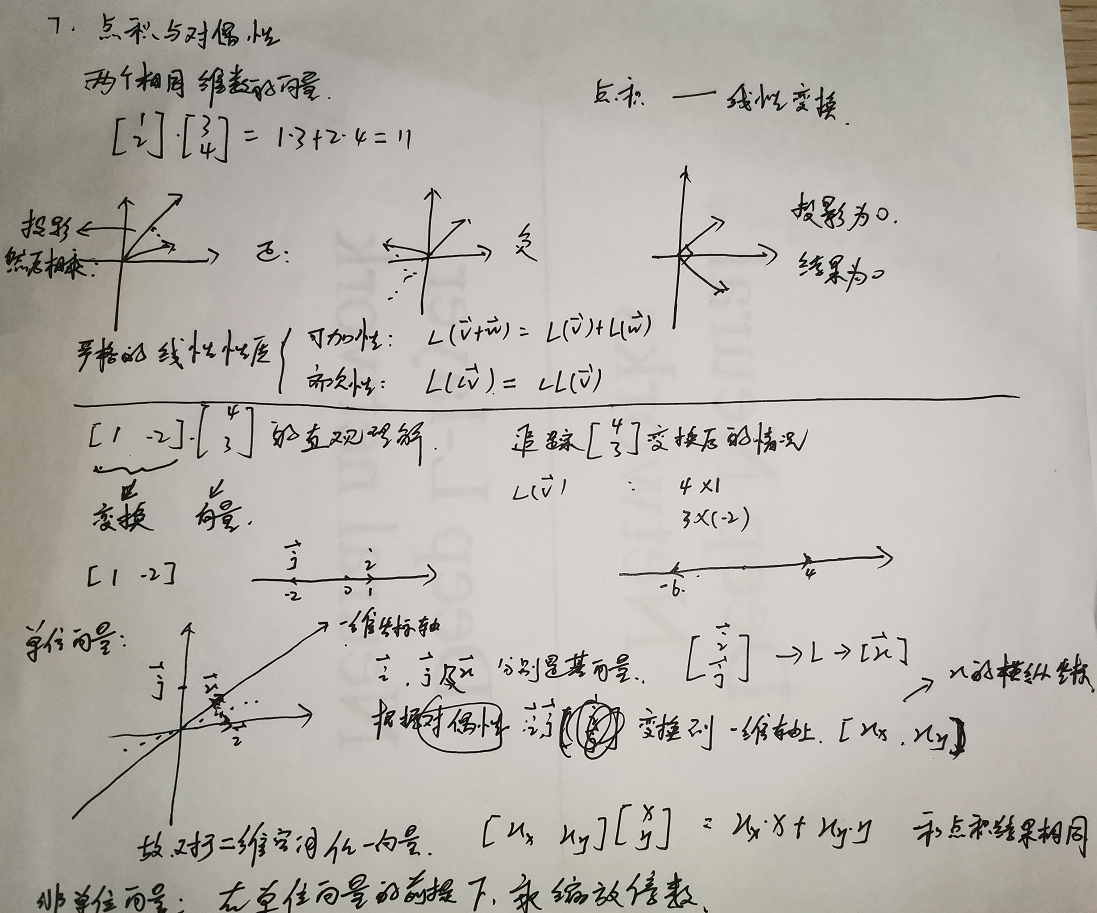 7. 点积与对偶性
两个相同维数的向量.
点积 — 线性变换.
[1 2]·[3 4] = 1·3+2·4 = 11
投影
然后相乘.
正:
负
投影为0.
结果为0
严格的线性性质 { 可加性: L(v⃗+w⃗) = L(v⃗)+L(w⃗)
齐次性: L(cv⃗) = cL(v⃗)
[1 -2]·[4 3] 的直观理解.
追踪[4 3]变换后的情况
变换 向量.
L(v⃗) : 4×1
3×(-2)
[1 -2]
j⃗ i
-2 0 1
-6 4
单位向量:
一维坐标轴
j⃗ u⃗ i⃗
i⃗, j⃗及u⃗ 分别是基向量.
[i⃗ j⃗] → L → [u⃗]
u的横纵坐标
根据对偶性 i⃗j⃗ 变换到一维轴上. [ux, uy]
故对于二维空间任一向量. [ux uy][x y] = ux·x + uy·y 和点积结果相同
非单位向量: 在单位向量的前提下, 乘缩放倍数.